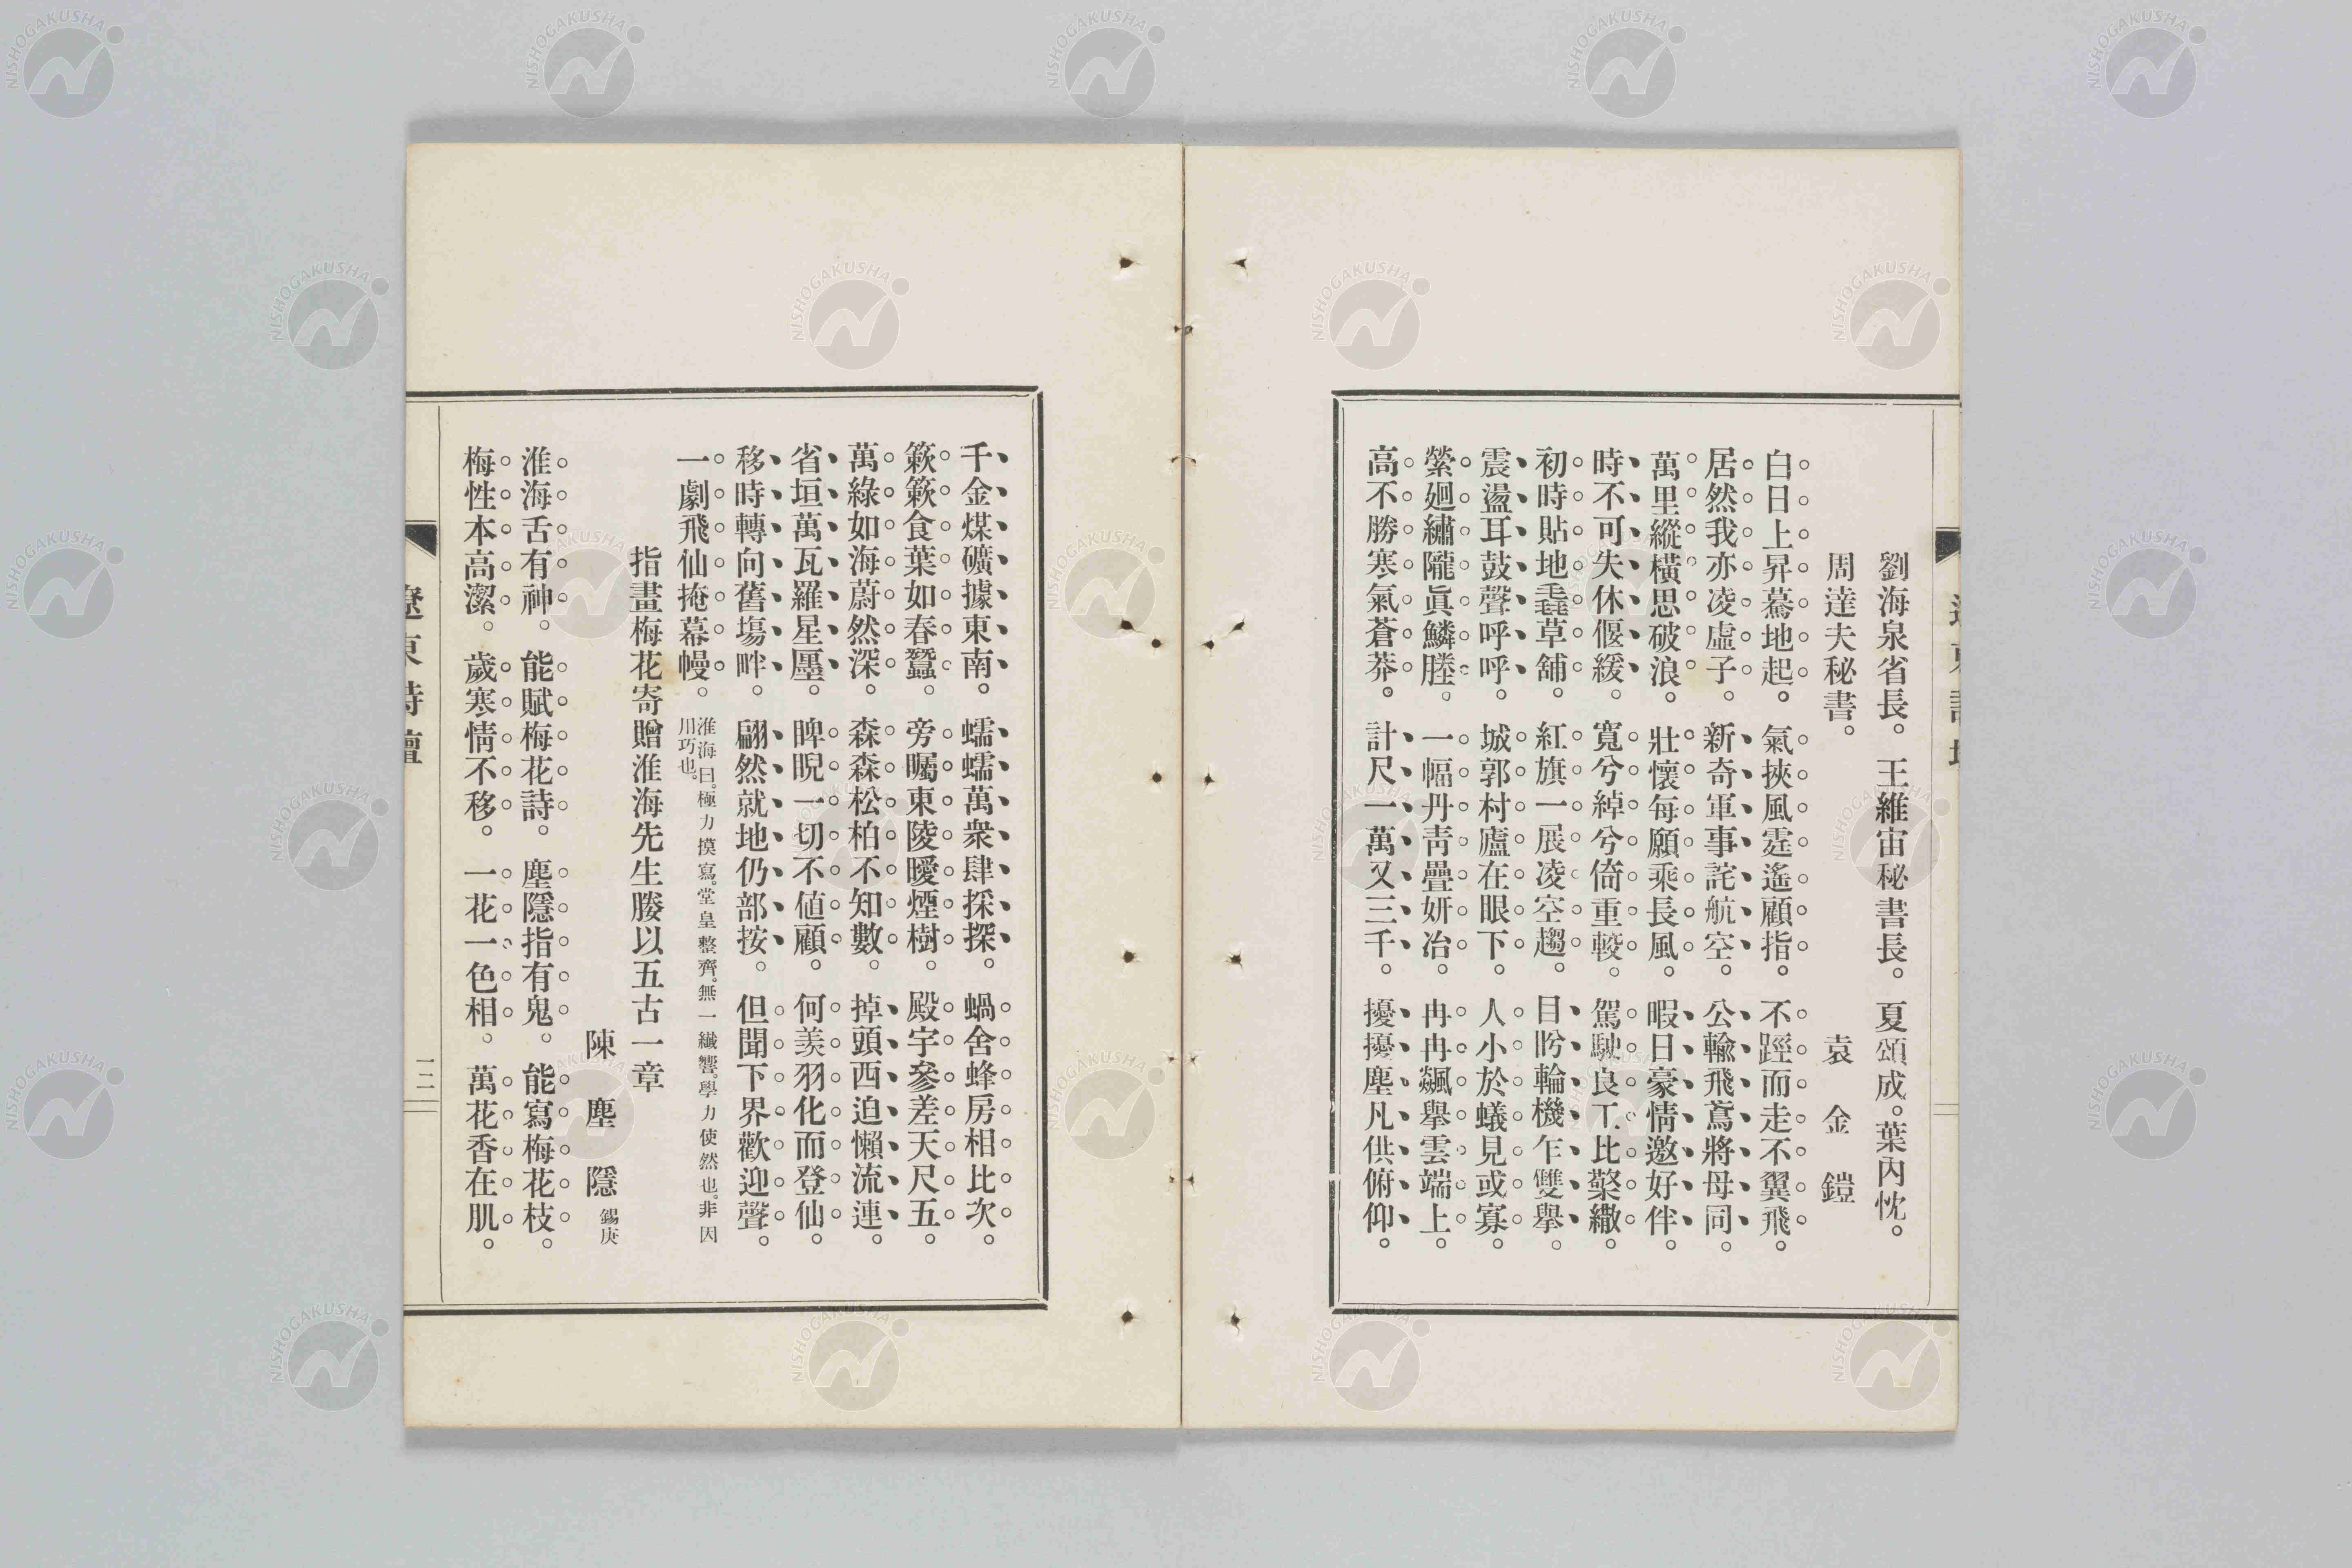 劉海泉省長。王維宙秘書長。夏頌成。葉內忱。
周達夫秘書。
袁金鎧
白日上昇驀地起。氣挾風霆遙顧指。不蹬而走不翼飛。
居然我亦凌虛子。新奇軍事詫航空。公輸飛鳶將毋同。
萬里縱橫思破浪。壯懷每願乘長風。暇日豪情邀好伴。
時不可失休偃緩。寬兮綽兮倚重較。駕駛良工比檠繖。
初時貼地毳草舖。紅旗一展凌空趨。目眙輪機乍雙舉。
震盪耳鼓聲呼呼。城郭村廬在眼下。人小於蟻見或寡。
縈廻繡隴眞鱗塍。一幅丹靑疊姸冶。冉冉飆舉雲端上。
高不勝寒氣蒼莽。計尺一萬又三千。擾擾塵凡供俯仰。
千金煤礦據東南。蠕蠕萬衆肆採探。蝸舍蜂房相比次。
簌簌食葉如春蠶。旁矚東陵曖煙樹。殿宇參差天尺五。
萬綠如海蔚然深。森森松柏不知數。掉頭西迫懶流連。
省垣萬瓦羅星躔。睥睨一切不値顧。何羨羽化而登仙。
移時轉向舊塲畔。翩然就地仍部按。但聞下界歡迎聲。
一劇飛仙掩幕幔。淮海曰。極力摸寫。堂皇整齊。無一纎響。學力使然也。非因
用巧也。
指畫梅花寄贈淮海先生媵以五古一章
陳塵隱錫庚
淮海舌有神。能賦梅花詩。塵隱指有鬼。能寫梅花枝。
梅性本高潔。歲寒情不移。一花一色相。萬花香在肌。
遼東詩壇